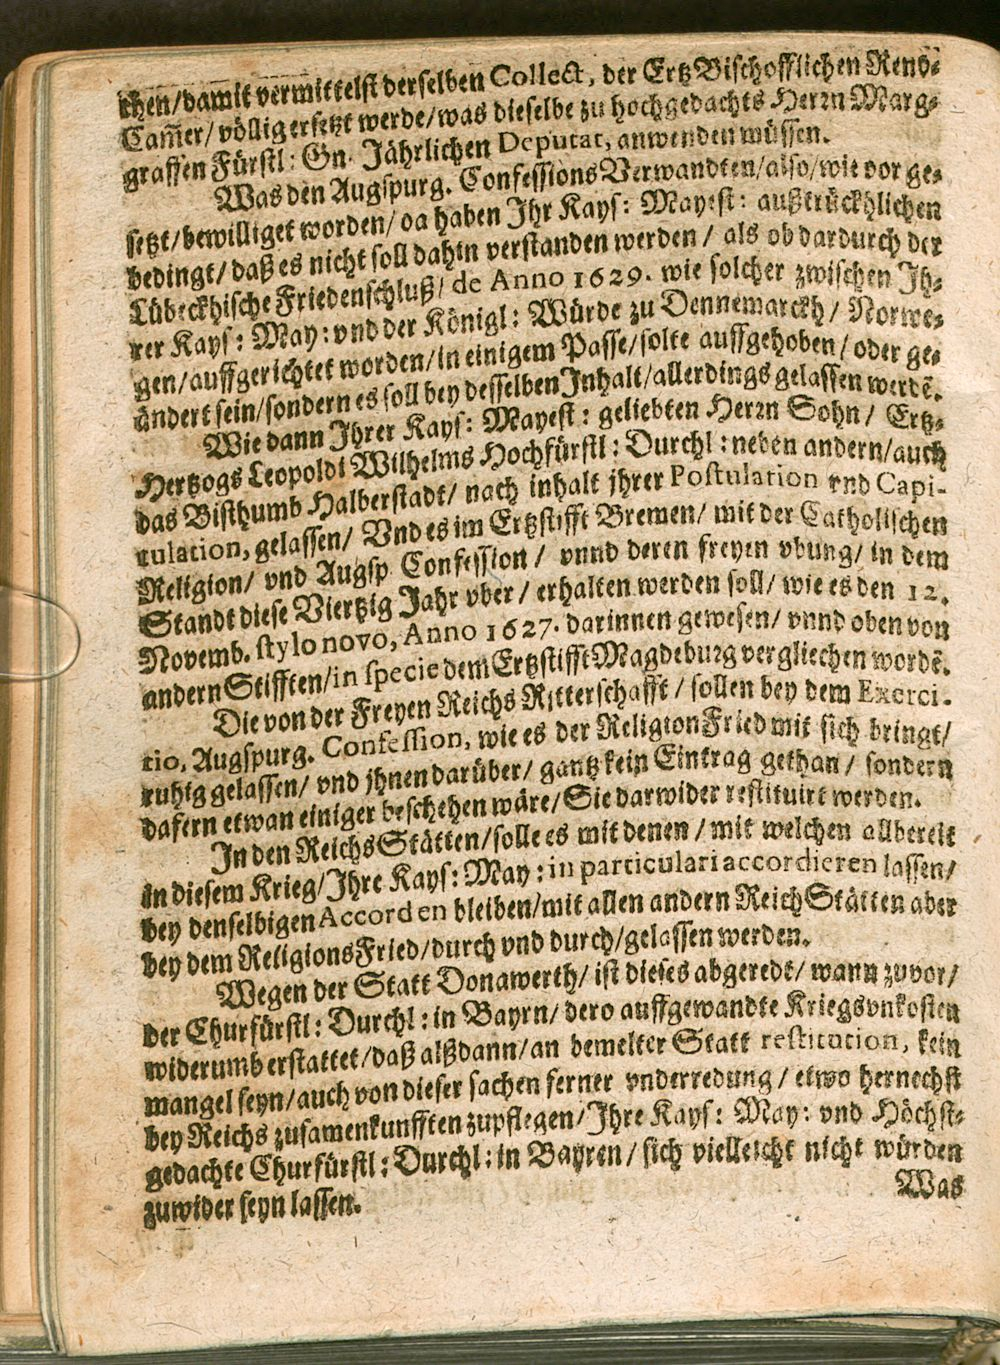 chen/damit vermittelst derselben Collect, der ErtzBischofflichen Rend-
Cam̃er/völlig ersetzt werde/was dieselbe zu hochgedachts Herrn Marg-
graffen Fürstl: Gn. Jährlichen Deputat, anwenden müssen.
Was den Augspurg. ConfessionsVerwandten/also/wie vor ge-
setzt/bewilliget worden/da haben Ihr Kays: Mayest: außtrückhlichen
bedingt/daß es nicht soll dahin verstanden werden / als ob dardurch der
Lübeckhische Friedenschluß/ de Anno 1629. wie solcher zwischen Ih-
rer Kays: May: vnd der Königl: Würde zu Dennemarckh / Norwe-
gen/auffgerichtet worden/in einigem Passe/solte auffgehoben / oder ge-
ändert sein/sondern es soll bey desselben Inhalt/allerdings gelassen werdẽ.
Wie dann Ihrer Kays: Mayest: geliebten Herrn Sohn / Ertz-
Hertzogs Leopoldi Wilhelms Hochfürstl: Durchl: neben andern/auch
das Bisthumb Halberstadt/ nach inhalt jhrer Postulation vnd Capi-
tulation, gelassen/ Vnd es im Ertzstifft Bremen/ mit der Catholischen
Religion/ vnd Augsp. Confession / vnnd deren freyen vbung/ in dem
Standt diese Viertzig Jahr vber / erhalten werden soll/ wie es den 12.
Novemb. stylo novo, Anno 1627. darinnen gewesen/ vnnd oben von
andern Stifften/in specie dem Ertzstifft Magdeburg vergliechen wordẽ.
Die von der Freyen Reichs Ritterschafft / sollen bey dem Exerci-
tio, Augspurg. Confession, wie es der ReligionFried mit sich bringt/
ruhig gelassen/ vnd jhnen darüber/ gantz kein Eintrag gethan / sondern
dafern etwan einiger beschehen wäre/Sie darwider restituirt werden.
In den ReichsStätten/solle es mit denen / mit welchen allbereit
in diesem Krieg/Ihre Kays: May: in particulari accordieren lassen/
bey denselbigen Accorden bleiben/mit allen andern ReichStätten aber
bey dem ReligionsFried/durch vnd durch/gelassen werden.
Wegen der Statt Donawerth/ ist dieses abgeredt/ wann zuvor/
der Churfürstl: Durchl: in Bayrn/ dero auffgewandte Kriegsvnkosten
widerumb erstattet/daß alßdann/an bemelter Statt restitution, kein
mangel seyn/auch von dieser sachen ferner vnderredung / etwo hernechst
bey Reichs zusamenkunfften zupflegen/Ihre Kays: May: vnd Höchst-
gedachte Churfürstl: Durchl: in Bayren / sich vielleicht nicht würden
zuwider seyn lassen.
Was